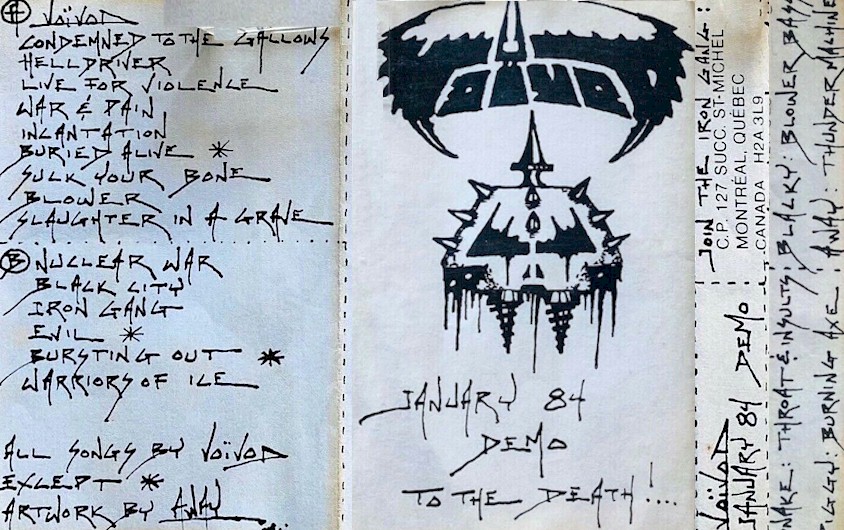 A VOÏVOD
CONDEMNED TO THE GALLOWS
HELLDRIVER
LIVE FOR VIOLENCE
WAR & PAIN
INCANTATION
BURIED ALIVE *
SUCK YOUR BONE
BLOWER
SLAUGHTER IN A GRAVE
B NUCLEAR WAR
BLACK CITY
IRON GANG
EVIL *
BURSTING OUT *
WARRIORS OF ICE
ALL SONGS BY VOÏVOD
EXCEPT *
ARTWORK BY AWAY
VOIVOD
JANUARY 84
DEMO
TO THE DEATH!...
JOIN THE IRON GANG:
C.P. 127 SUCC. ST-MICHEL
MONTRÉAL, QUÉBEC
CANADA H2A 3L9
VOÏVOD
JANUARY 84 DEMO
THROAT & INSULTS; BLACKY: BLOWER
BURNING AXE; AWAY: THUNDER MACHINE